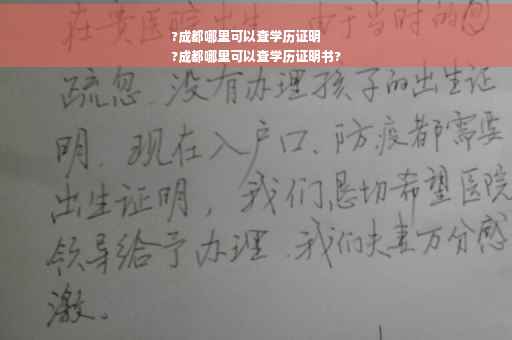 在贵医院出生,由于当时的
?成都哪里可以查学历证明
?成都哪里可以查学历证明书?
疏忽,没有办理孩子的出生证
明,现在入户口、防疫都需要
出生证明,我们恳切希望医院
领导给予办理,我们夫妻万分感
激。